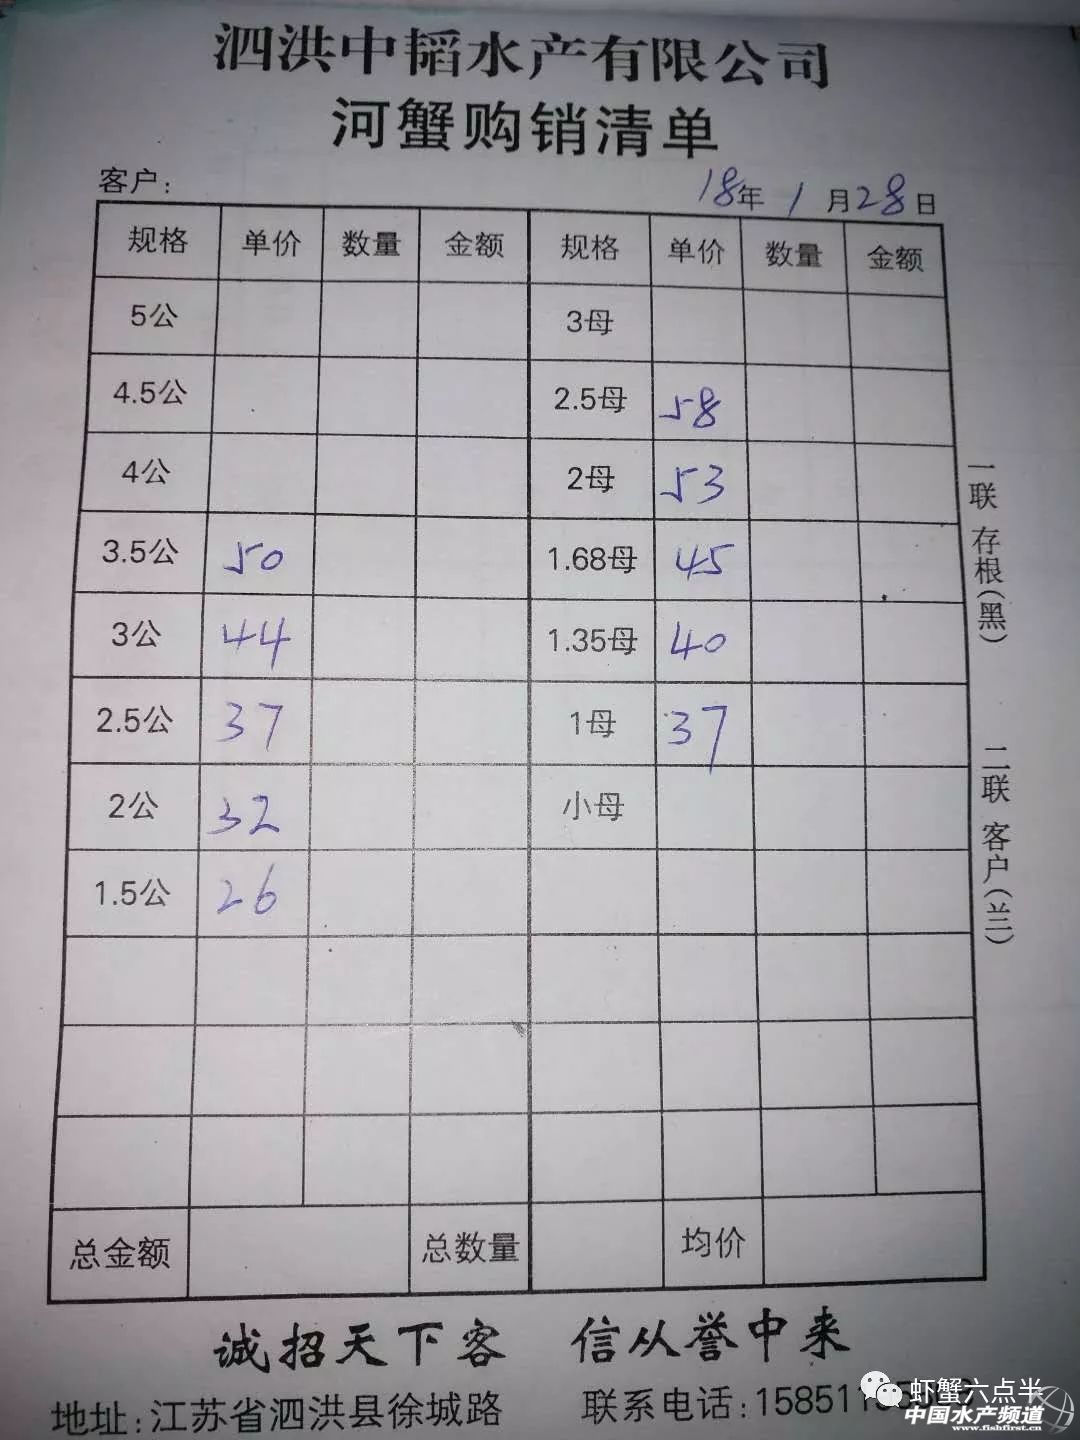 泗洪中韬水产有限公司
河蟹购销清单
客户: 18年1月28日
规格 单价 数量 金额 规格 单价 数量 金额
5公 3母
4.5公 2.5母 58
4公 2母 53
3.5公 50 1.68母 45
3公 44 1.35母 40
2.5公 37 1母 37
2公 32 小母
1.5公 26
总金额 总数量 均价
一联 存根(黑) 二联 客户(兰)
诚招天下客 信从誉中来
地址:江苏省泗洪县徐城路 联系电话:158511
虾蟹六点半
中国水产频道
www.fishfirst.cn